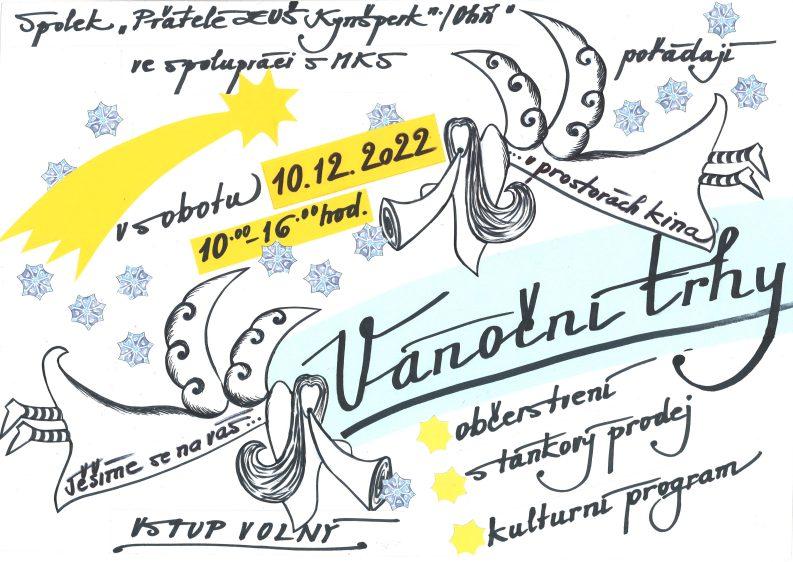 Spolek „Přátelé ZUŠ Kynšperk n./Ohří"
ve spolupráci s MKS
pořádají
v sobotu 10.12.2022
10.00-16.00 hod.
...v prostorách kina
Vánoční trhy
občerstvení
stánkový prodej
kulturní program
těšíme se na vás...
VSTUP VOLNÝ